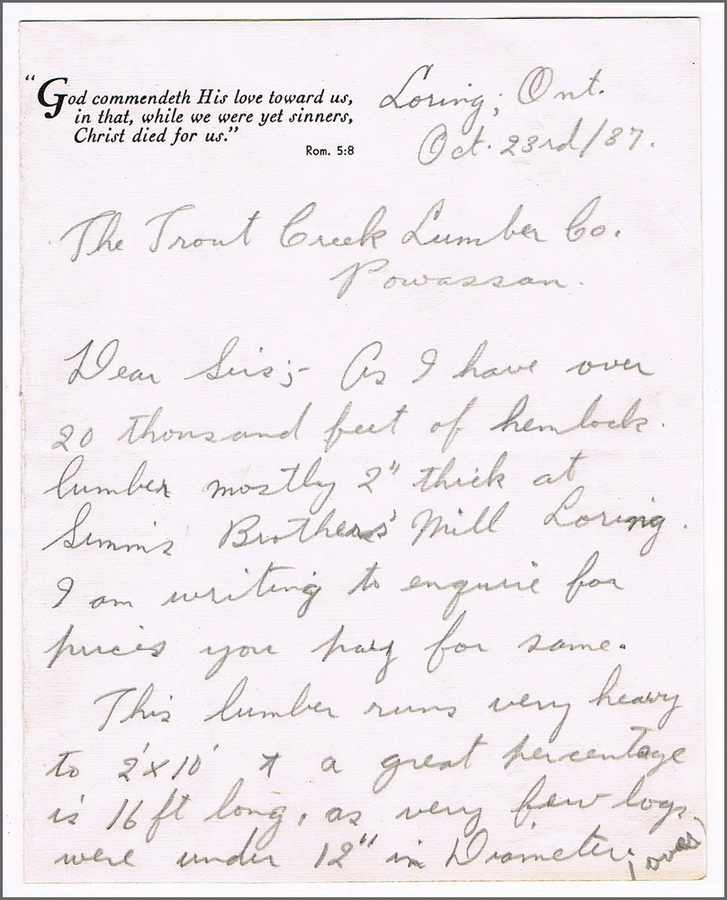 "God commendeth His love toward us,
in that, while we were yet sinners,
Christ died for us."
Rom. 5:8
Loring, Ont.
Oct. 23rd/37.
The Trout Creek Lumber Co.
Powassan.
Dear Sirs;- As I have over
20 thousand feet of hemlock
lumber mostly 2" thick at
Simms Brothers' Mill Loring.
I am writing to enquire for
prices you pay for same.
This lumber runs very heavy
to 2'x10' & a great percentage
is 16 ft long, as very few logs
were under 12" in Diameter.
(over)